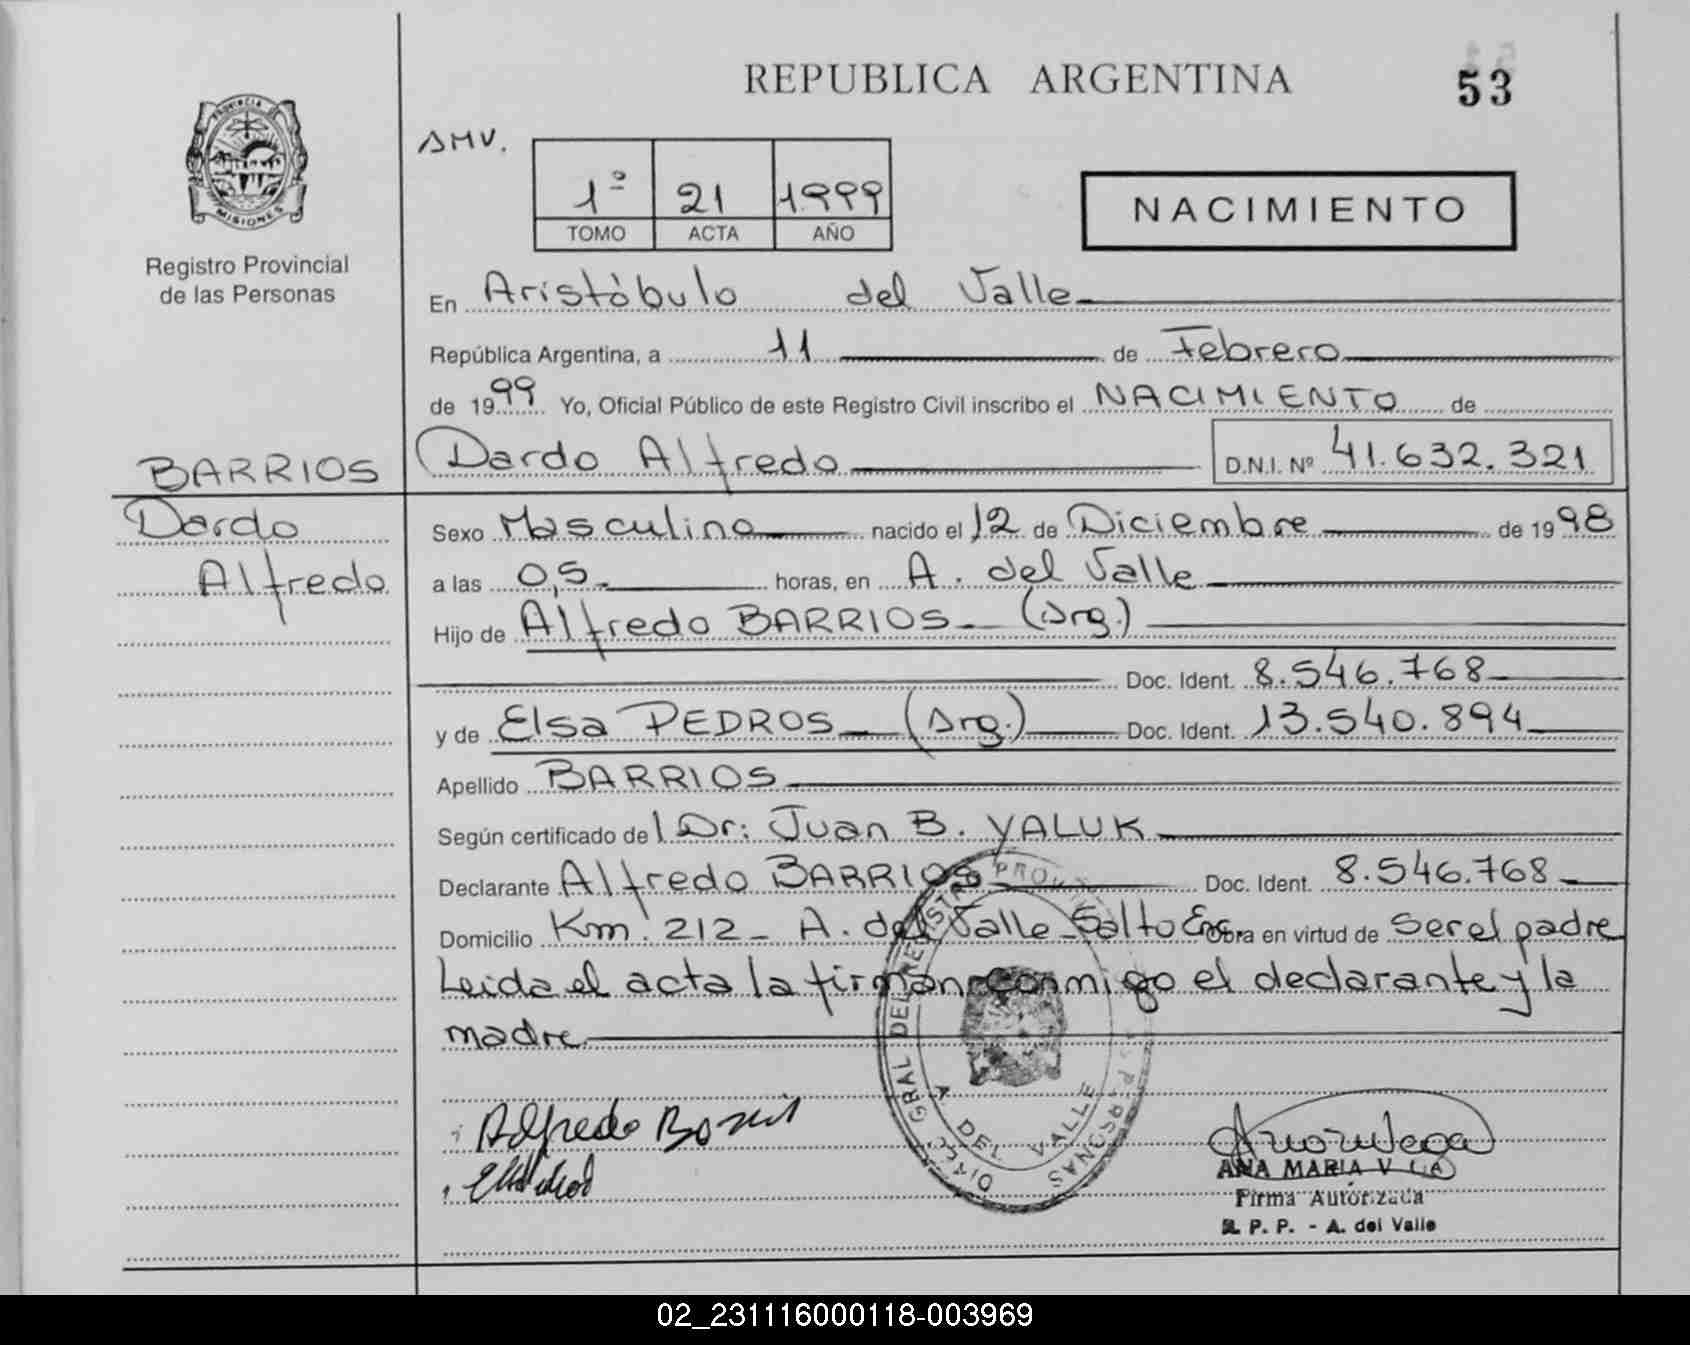 REPUBLICA ARGENTINA
53
PROVINCIA DE
MISIONES
Registro Provincial
de las Personas
AMV.
1º 21 1999
TOMO ACTA AÑO
NACIMIENTO
En Aristóbulo del Valle
República Argentina, a 11 de Febrero
de 1999 Yo, Oficial Público de este Registro Civil inscribo el NACIMIENTO de
Dardo Alfredo D.N.I. Nº 41.632.321
BARRIOS
Dardo
Alfredo
Sexo Masculino nacido el 12 de Diciembre de 1998
a las 0,5 horas, en A. del Valle
Hijo de Alfredo BARRIOS (Arg.)
Doc. Ident. 8.546.768
y de Elsa PEDROS (Arg.) Doc. Ident. 13.540.894
Apellido BARRIOS
Según certificado del Dr: Juan B. YALUK
Declarante Alfredo BARRIOS Doc. Ident. 8.546.768
Domicilio Km. 212 - A. del Valle Salto Enc. Obra en virtud de ser el padre
Leída el acta la firman conmigo el declarante y la
madre
Alfredo
A. DEL VALLE
ANA MARIA
Firma Autorizada
R. P. P. - A. del Valle
02_231116000118-003969